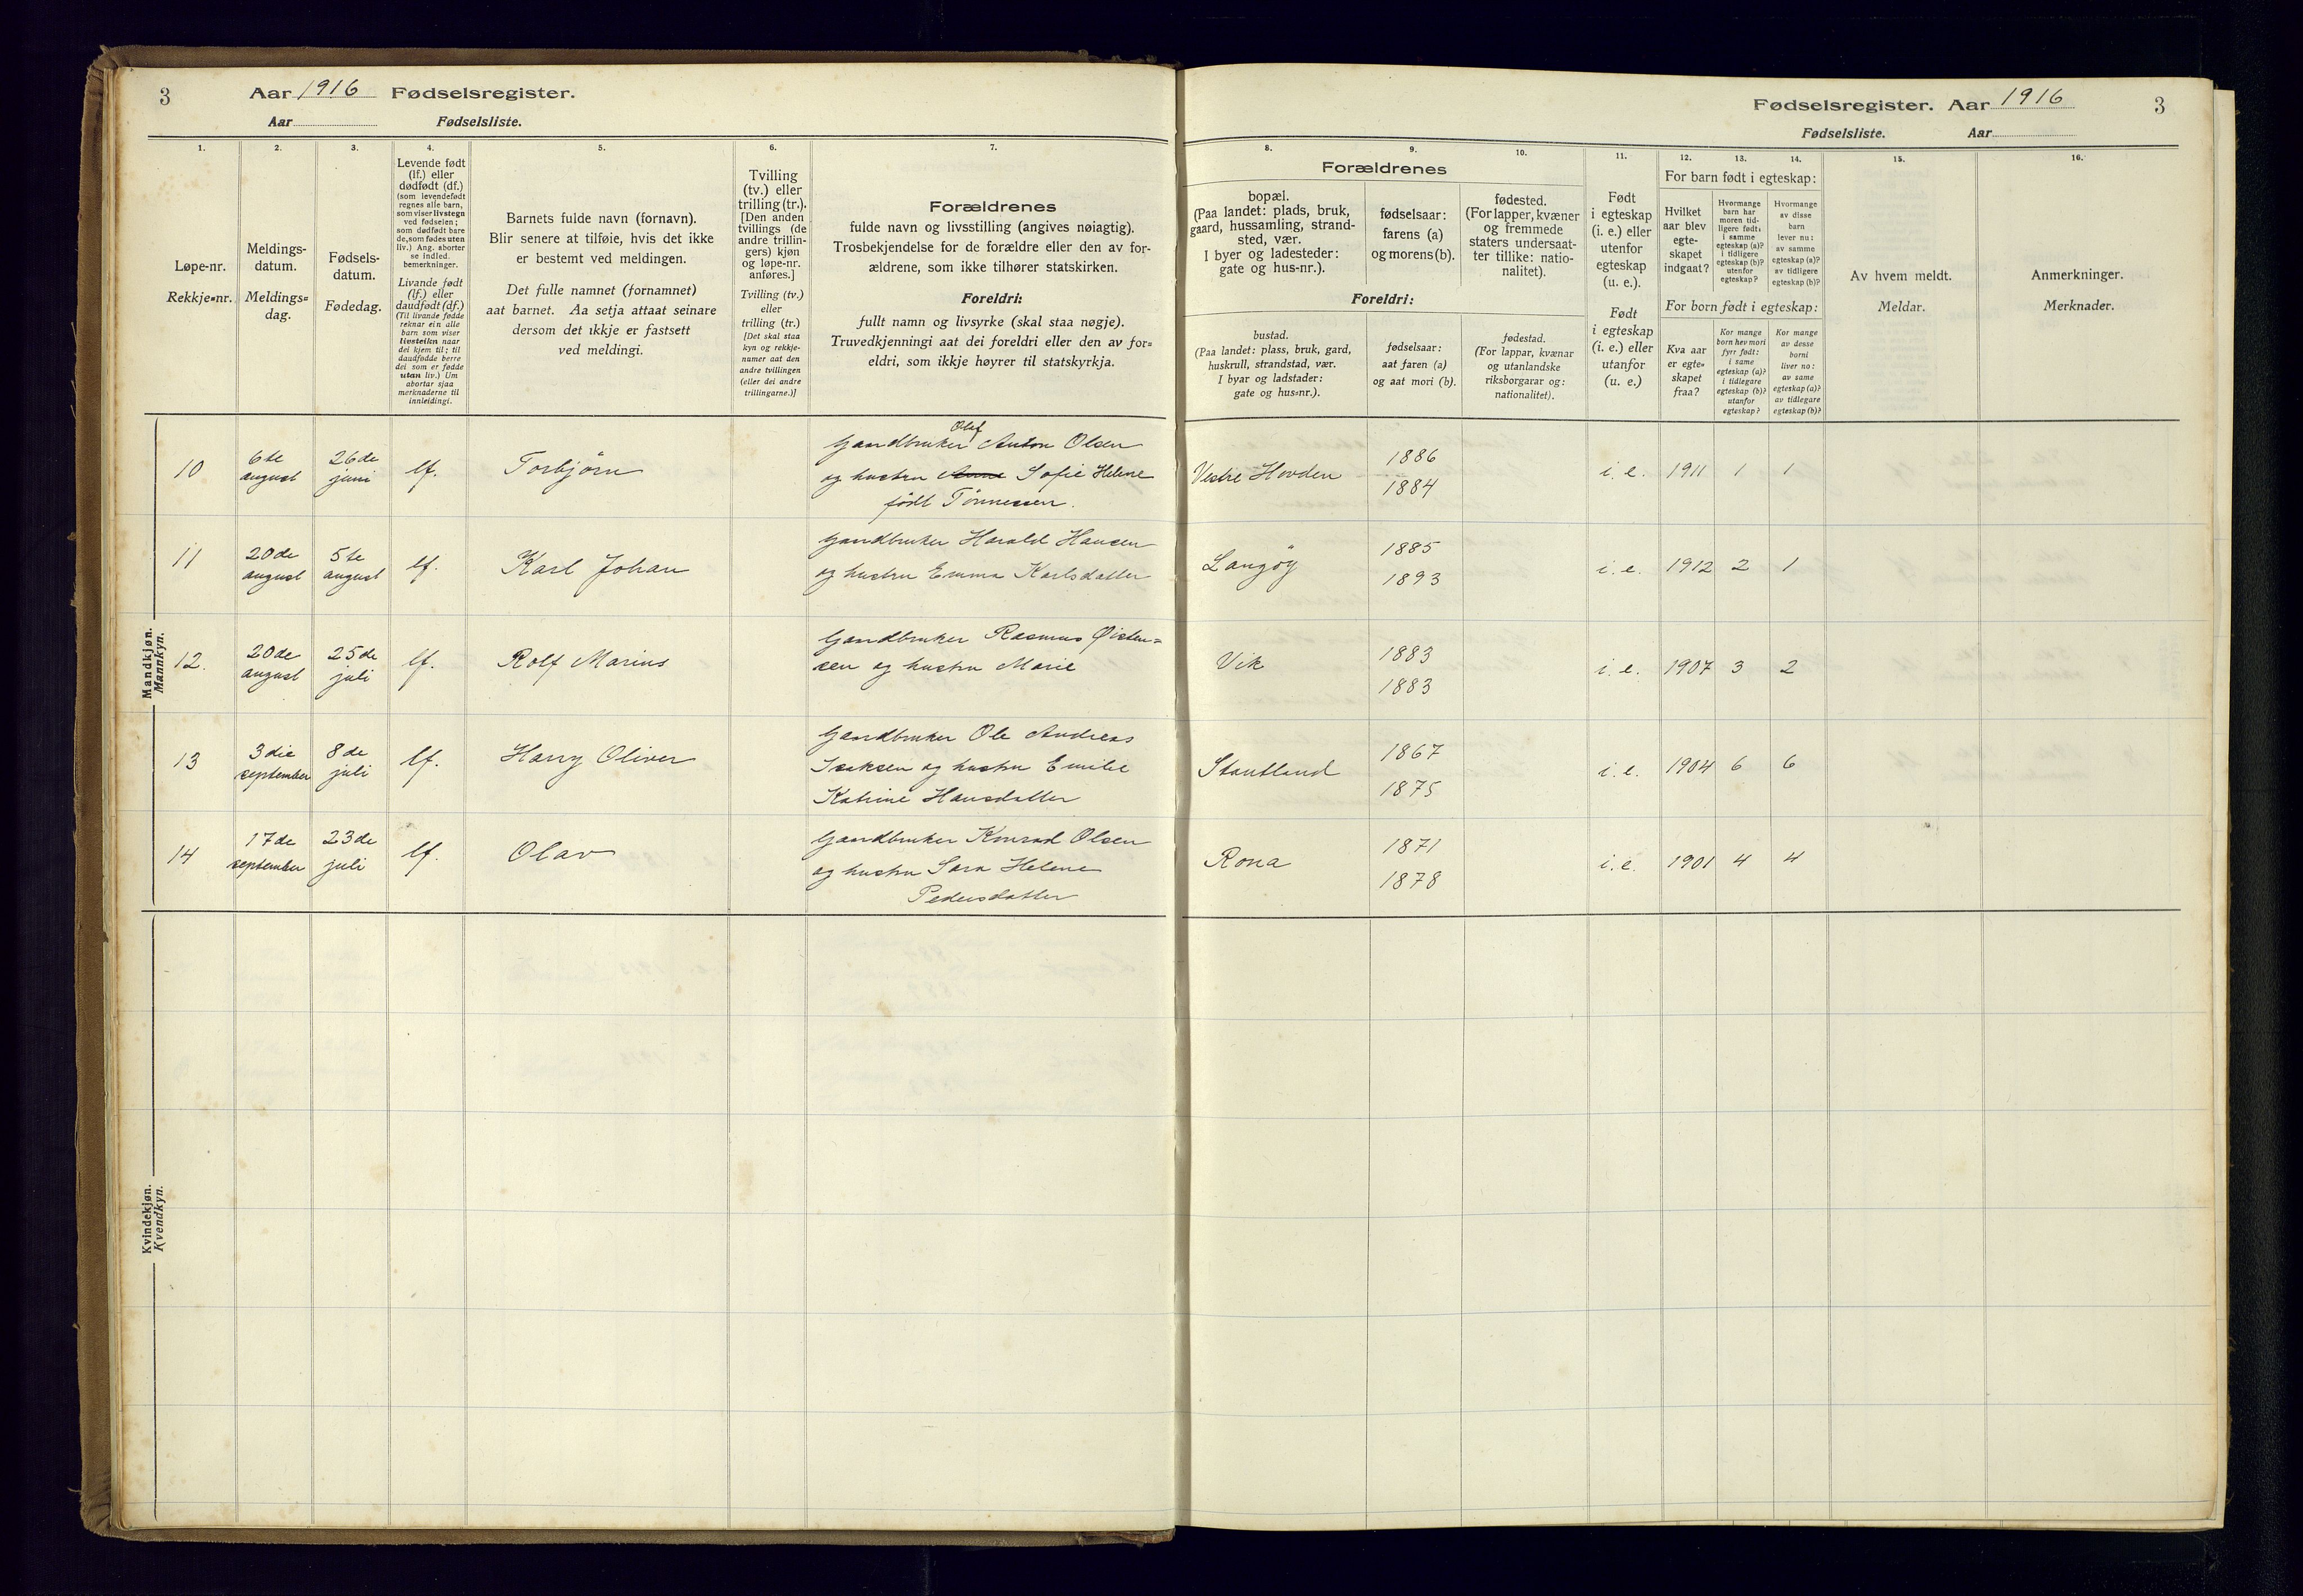 3
Aar 1916 Fødselsregister.
Aar Fødselsliste.
1.
2.
3.
4.
5.
6.
7.
Løpe-nr.
Rekkje=nr.
Meldings-
datum.
Meldings=
dag.
Fødsels-
datum.
Fødedag.
Levende født
(lf.) eller
dødfødt (df.)
(som levendefødt
regnes alle barn,
som viser livstegn
ved fødselen;
som dødfødt bare
de, som fødes uten
liv.) Ang. aborter
se indled.
bemerkninger.
Livande født
(lf.) eller
daudfødt (df.)
(Til livande fødde
reknar ein alle
barn som viser
livsteikn naar
dei kjem til; til
daudfødde berre
dei som er fødde
utan liv.) Um
abortar sjaa
merknaderne til
innleidingi.
Barnets fulde navn (fornavn).
Blir senere at tilføie, hvis det ikke
er bestemt ved meldingen.
Det fulle namnet (fornamnet)
aat barnet. Aa setja attaat seinare
dersom det ikkje er fastsett
ved meldingi.
Tvilling
(tv.) eller
trilling (tr.).
[Den anden
tvillings (de
andre trillin-
gers) kjøn
og løpe-nr.
anføres.]
Tvilling (tv.)
eller
trilling (tr.)
[Det skal staa
kyn og rekkje-
numer aat den
andre tvillingen
(eller dei andre
trillingarne.)]
Forældrenes
fulde navn og livsstilling (angives nøiagtig).
Trosbekjendelse for de forældre eller den av for-
ældrene, som ikke tilhører statskirken.
Foreldri:
fullt namn og livsyrke (skal staa nøgje).
Truvedkjenningi aat dei foreldri eller den av for=
eldri, som ikkje høyrer til statskyrkja.
Mandkjøn.
Mannkyn.
10
6te
august
26de
juni
lf.
Torbjörn
Olaf
Gaardbruker Anton Olsen
og hustru Anna Sofie Helene
född Tönnessen.
11
20de
august
5te
august
lf.
Karl Johan
Gaardbruker Harald Hansen
og hustru Emma Karlsdatter
12.
20de
august
25de
juli
lf.
Rolf Marius
Gaardbruker Rasmus Øisten=
sen og hustru Marie
13
3die
september
8de
juli
lf.
Harry Oliver
Gaardbruker Ole Andreas
Isaksen og hustru Emilie
Katrine Hansdatter
14
17de
september
23de
juli
lf.
Olav
Gaardbruker Konrad Olsen
og hustru Sara Helene
Pedersdatter
Kvindekjøn.
Kvendkyn.
Fødselsregister. Aar 1916
3
Fødselsliste. Aar
8.
9.
10.
11.
12.
13.
14.
15.
16.
Forældrenes
bopæl.
(Paa landet: plads, bruk,
gaard, hussamling, strand-
sted, vær.
I byer og ladesteder:
gate og hus-nr.).
fødselsaar:
farens (a)
og morens (b).
fødested.
(For lapper, kvæner
og fremmede
staters undersaat-
ter tillike: natio-
nalitet).
Foreldri:
bustad.
(Paa landet: plass, bruk, gard,
huskrull, strandstad, vær.
I byar og ladstader:
gate og hus=nr.).
fødselsaar:
aat faren (a)
og aat mori (b).
fødestad.
(For lappar, kvænar
og utanlandske
riksborgarar og:
nationalitet).
Født
i egteskap
(i. e.) eller
utenfor
egteskap
(u. e.).
Født
i egteskap
(i. e.) eller
utanfor
(u. e.)
For barn født i egteskap:
Hvilket
aar blev
egte-
skapet
indgaat?
Hvormange
barn har
moren tid-
ligere født:
i samme
egteskap (a)?
i tidligere
egteskap (b)?
utenfor
egteskap?
Hvormange
av disse
barn
lever nu:
av samme
egteskap (a)?
av tidligere
egteskap (b)?
For born født i egteskap:
Kva aar
er egte-
skapet
fraa?
Kor mange
born hev mori
fyrr født:
i same
egteskap (a)?
i tidlegare
egteskap (b)?
utanfor
egteskap?
Kor mange
av desse
borni
liver no:
av same
egteskap (a)?
av tidlegare
egteskap (b)?
Av hvem meldt.
Meldar.
Anmerkninger.
Merknader.
Vestre Hovden
1886
1884
i. e. 1911 1 1
Langöy
1885
1893
i. e. 1912 2 1
Vik
1883
1883
i. e. 1907 3 2
Stautland
1867
1875
i. e. 1904 6 6
Rona
1871
1878
i. e. 1901 4 4